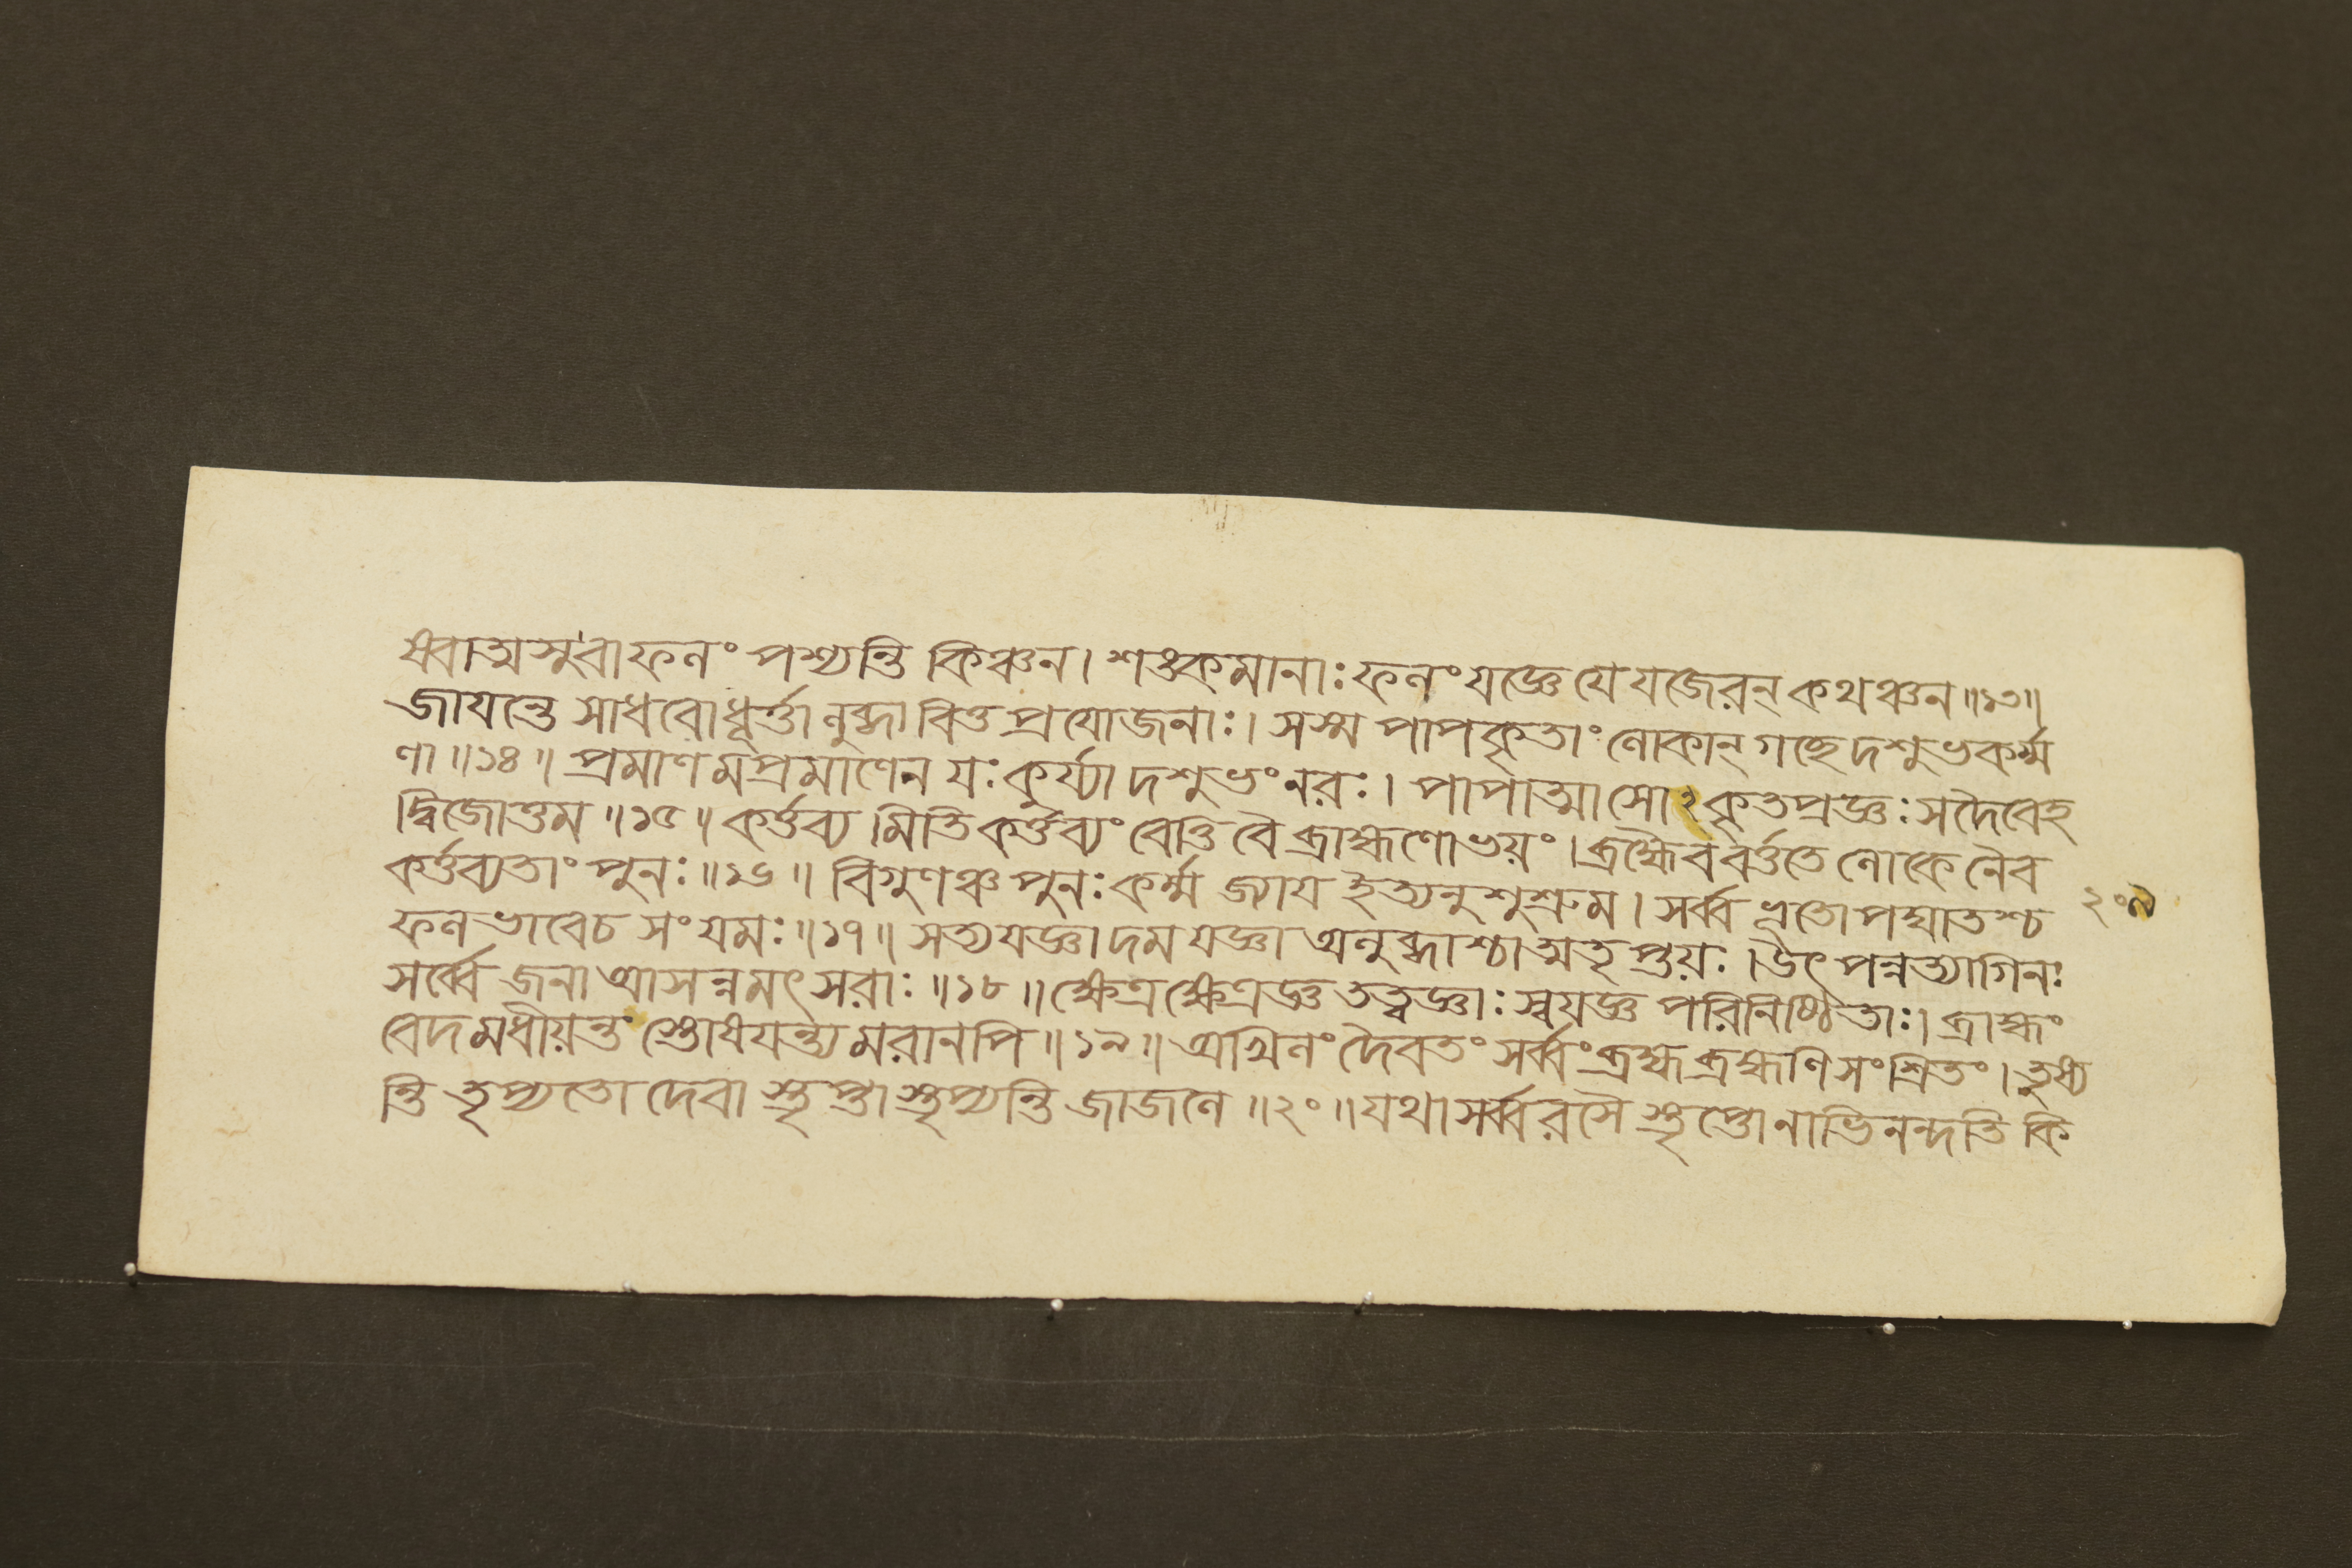 ষেবাত্মসু বা ফলং পশ্যন্তি কিঞ্চন। শঙ্কমানাঃ ফলং যজ্ঞে যে যজেরন্ কথঞ্চন॥১৩॥
জাযন্তে সাধবো ধূর্ত্তা লুব্ধা বিত্ত প্রযোজনাঃ। সস্ম পাপকৃতাং লোকান্ গচ্ছেদশুভকর্ম্ম
ণা॥১৪॥ প্রমাণমপ্রমাণেন যঃ কুর্য্যাদশুভং নরঃ। পাপাত্মা সোঽকৃতপ্রজ্ঞঃ সদৈবেহ
দ্বিজোত্তম॥১৫॥ কর্ত্তব্যমিতি কর্ত্তব্যং বেত্তি বৈ ব্রাহ্মণোভয়ং। ব্রহ্মৈব বর্ত্ততে লোকে নৈব
কর্ত্তব্যতাং পুনঃ॥১৬॥ বিগুণঞ্চ পুনঃ কর্ম্ম জ্যায ইত্যনুশুশ্রুম। সর্ব্ব ভূতোপঘাতশ্চ
ফলভাবে চ সংযমঃ॥১৭॥ সত্যযজ্ঞা দমযজ্ঞা অলুব্ধাশ্চাত্মতৃপ্তয়ঃ। উৎপন্নত্যাগিনঃ
সর্ব্বে জনা আসন্নমৎসরাঃ॥১৮॥ ক্ষেত্রক্ষেত্রজ্ঞতত্ত্বজ্ঞাঃ স্বযজ্ঞপরিনিষ্ঠিতাঃ। ব্রাহ্মং
বেদমধীয়ন্তস্তোষযন্ত্যমরানপি॥১৯॥ অখিলং দৈবতং সর্ব্বং ব্রহ্ম ব্রহ্মণি সংশ্রিতং। তুষ্য
ন্তি তৃপ্যতো দেবাস্তৃপ্তাস্তৃপ্যন্তি জাজলে॥২০॥ যথা সর্ব্বরসৈস্তৃপ্তো নাভিনন্দতি কি
২০৯